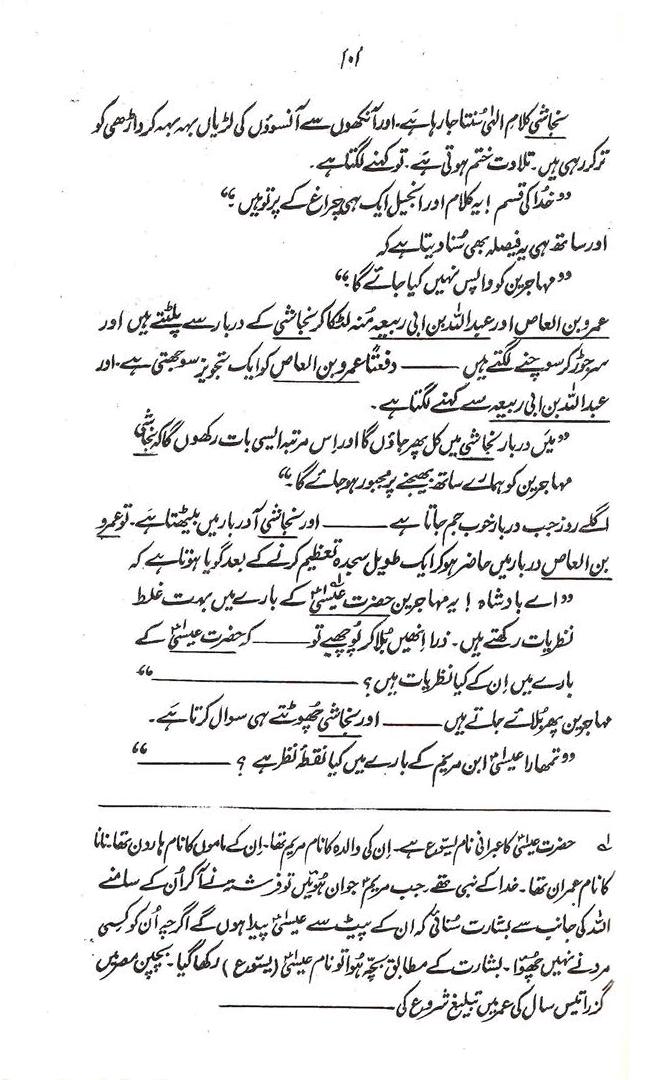 ۱۰۱
نجاشی کلامِ الٰہی سُنتا جا رہا ہے۔ اور آنکھوں سے آنسوؤں کی لڑیاں بہہ بہہ کر داڑھی کو
تر کر رہی ہیں۔ تلاوت ختم ہوتی ہے۔ تو کہنے لگتا ہے۔
”خدا کی قسم! یہ کلام اور انجیل ایک ہی چراغ کے پرتو ہیں۔“
اور ساتھ ہی یہ فیصلہ بھی سُنا دیتا ہے کہ
”مہاجرین کو واپس نہیں کیا جائے گا۔“
عمرو بن العاص اور عبداللہ بن ابی ربیعہ مُنہ لٹکا کر نجاشی کے دربار سے پلٹتے ہیں اور
سر جوڑ کر سوچنے لگتے ہیں ——— دفعتاً عمرو بن العاص کو ایک تجویز سوجھتی ہے۔ اور
عبداللہ بن ابی ربیعہ سے کہنے لگتا ہے۔
”میں دربار نجاشی میں کل پھر جاؤں گا اور اِس مرتبہ ایسی بات رکھوں گا کہ نجاشی
مہاجرین کو ہمارے ساتھ بھیجنے پر مجبور ہو جائے گا۔“
اگلے روز جب دربار خوب جم جاتا ہے ——— اور نجاشی آ دربار میں بیٹھتا ہے۔ تو عمرو
بن العاص دربار میں حاضر ہو کر ایک طویل سجدہ تعظیم کرنے کے بعد گویا ہوتا ہے کہ
”اے بادشاہ! یہ مہاجرین حضرت عیسیٰؑ لہ کے بارے میں بہت غلط
نظریات رکھتے ہیں۔ ذرا اِنھیں بُلا کر پُوچھیے تو ——— کہ حضرت عیسیٰؑ کے
بارے میں اِن کے کیا نظریات ہیں؟ ———“
مہاجرین پھر بُلائے جاتے ہیں ——— اور نجاشی چھُوٹتے ہی سوال کرتا ہے۔
”تمھارا عیسیٰؑ ابن مریم کے بارے میں کیا نقطۂ نظر ہے؟ ———“
لہ حضرت عیسیٰؑ کا عبرانی نام یسوع ہے۔ اِن کی والدہ کا نام مریم تھا۔ اِن کے ماموں کا نام ہارون تھا۔ نانا
کا نام عمران تھا۔ خدا کے نبی تھے۔ جب مریمؑ جوان ہوئیں تو فرشتہ نے آ کر اُن کے سامنے
اللہ کی جانب سے بشارت سُنائی کہ ان کے پیٹ سے عیسیٰؑ پیدا ہوں گے اگرچہ اُن کو کسی
مرد نے نہیں چھُوا۔ بشارت کے مطابق بچّہ ہوا تو نام عیسیٰؑ (یسوع) رکھا گیا۔ بچپن مصر میں
گزرا تیس سال کی عمر میں تبلیغ شروع کی ———